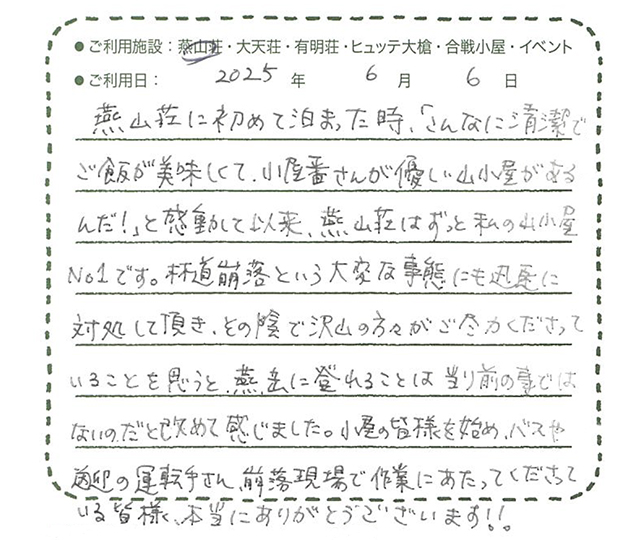 ●ご利用施設：燕山荘・大天荘・有明荘・ヒュッテ大槍・合戦小屋・イベント
●ご利用日：2025年 6月 6日
燕山荘に初めて泊まった時、「こんなに清潔で
ご飯が美味しくて、小屋番さんが優しい山小屋がある
んだ!」と感動して以来、燕山荘はずっと私の山小屋
No1です。林道崩落という大変な事態にも迅速に
対処して頂き、その陰で沢山の方々がご尽力くださって
いることを思うと、燕岳に登れることは当り前の事では
ないのだと改めて感じました。小屋の皆様を始め、バスや
送迎の運転手さん、崩落現場で作業にあたってくださって
いる皆様、本当にありがとうございます!!